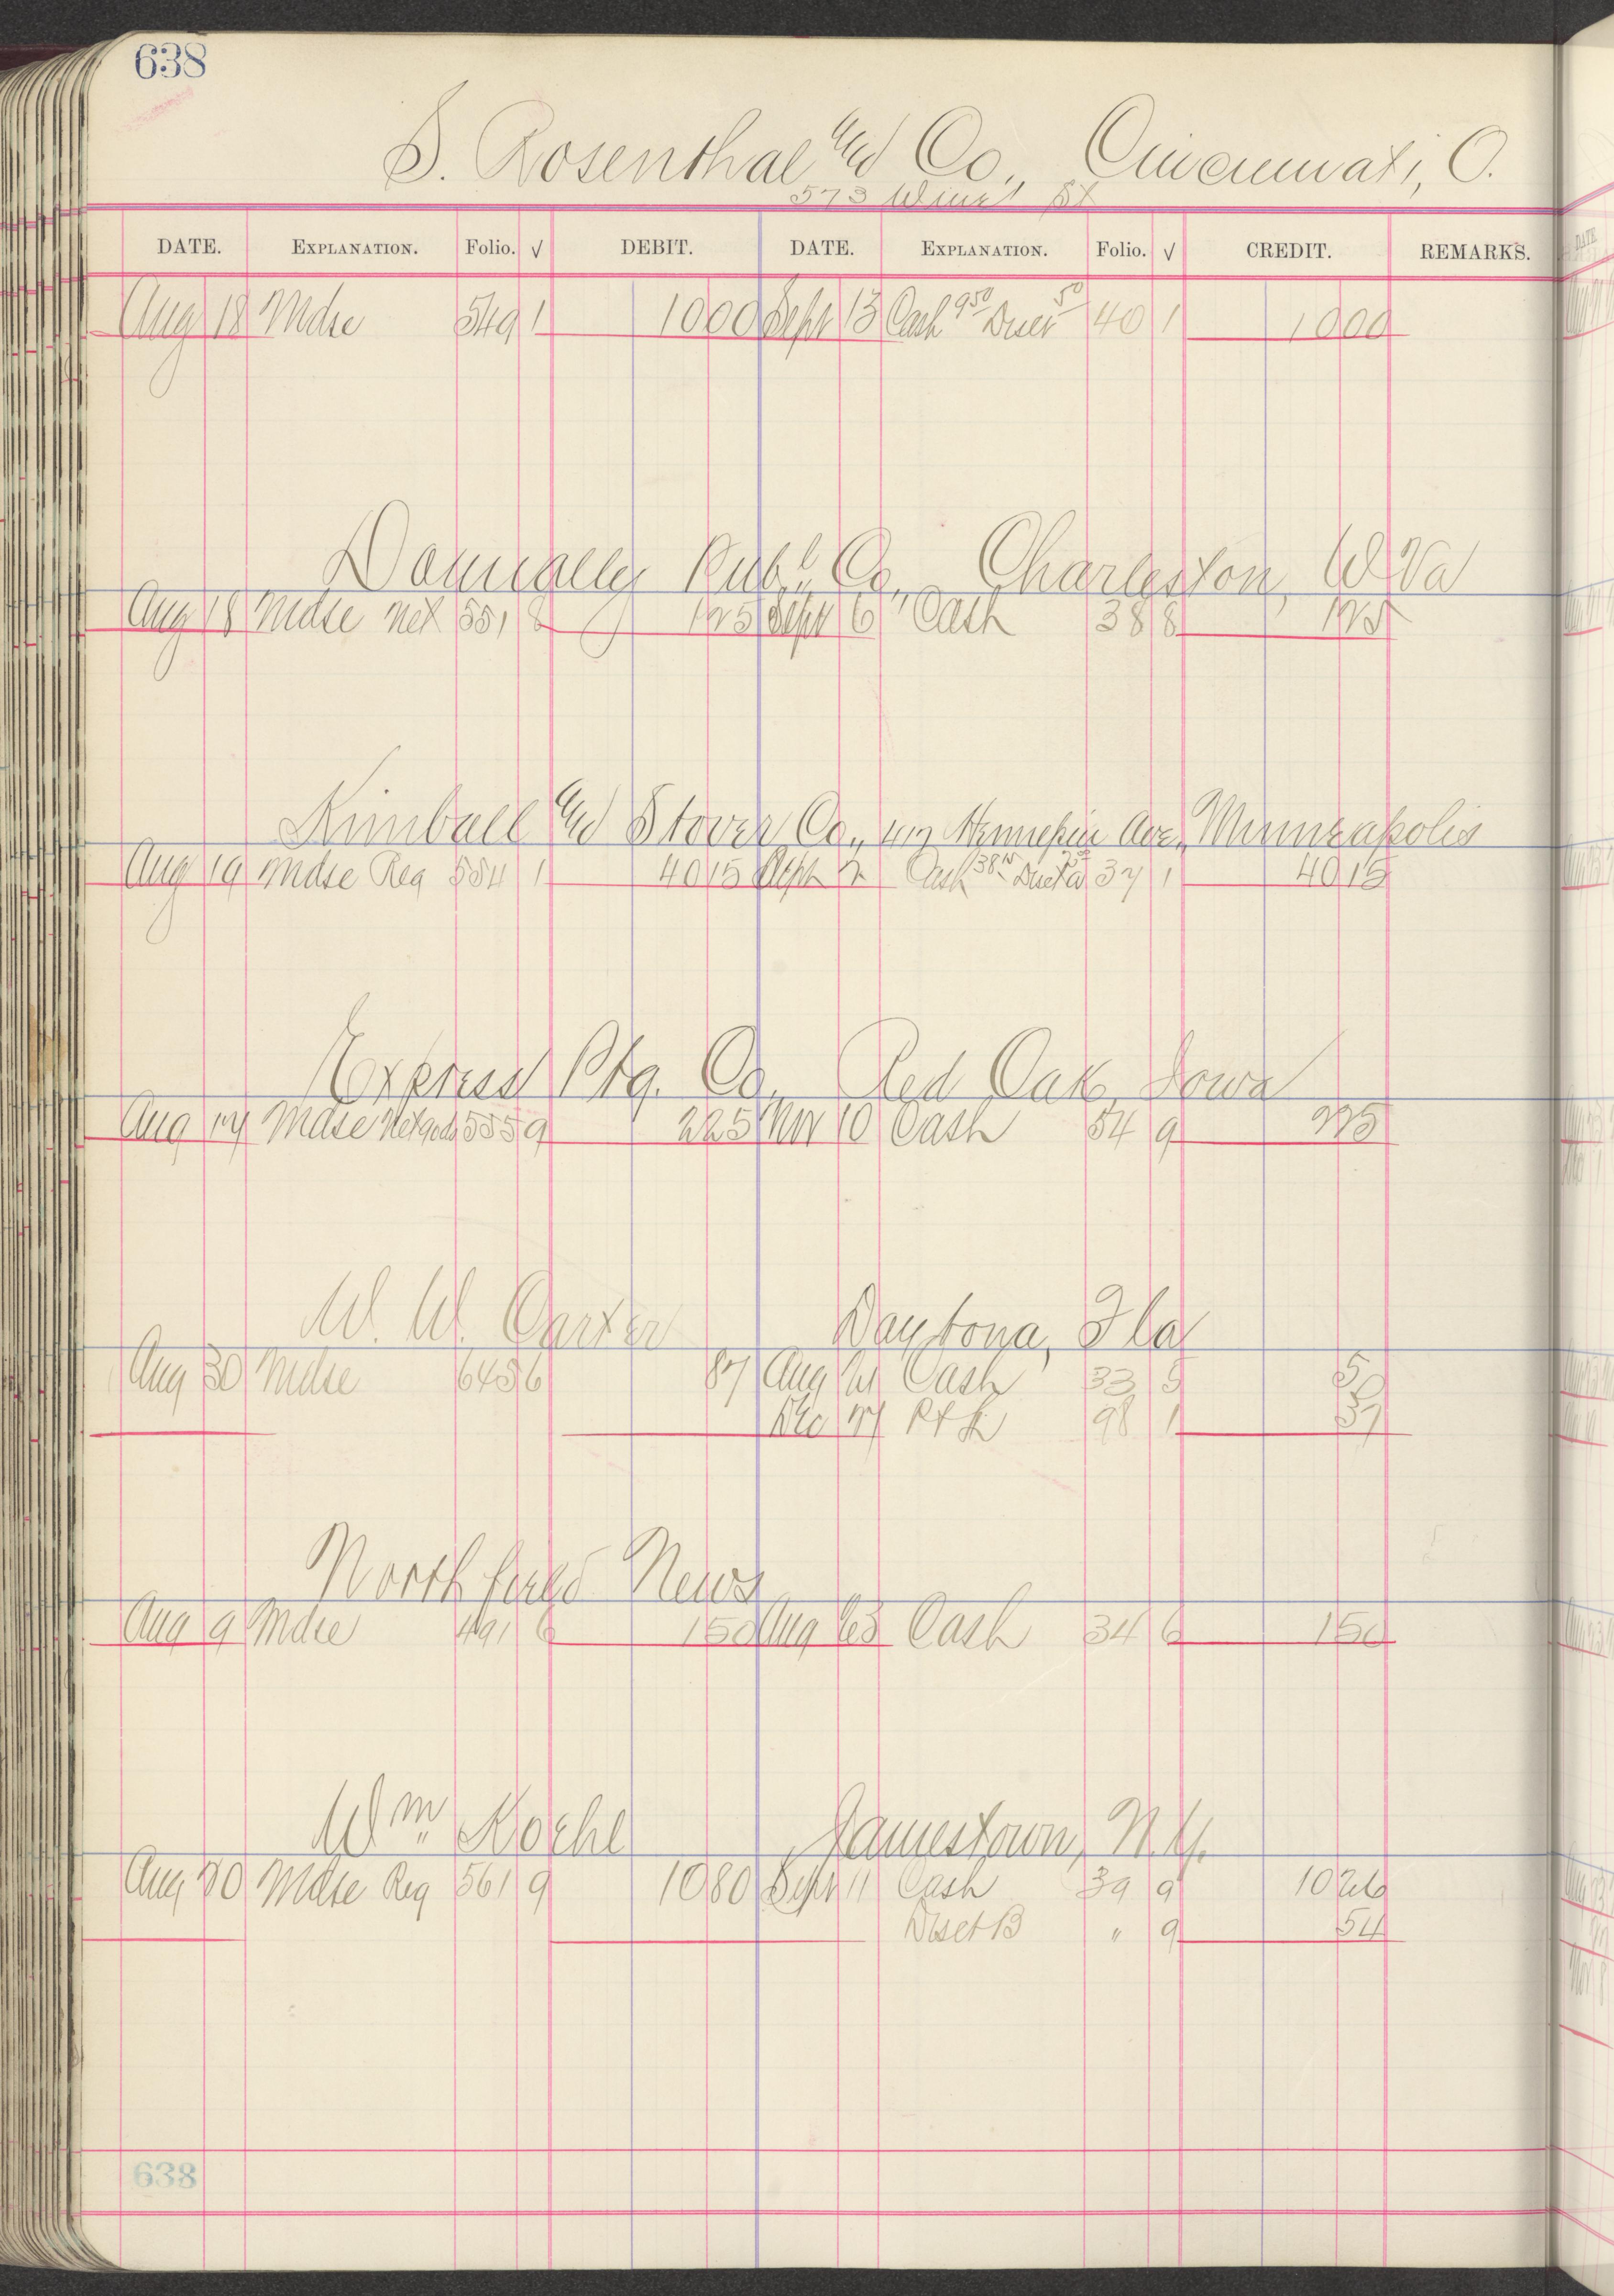 638
S. Rosenthal and Co., Cincinnati, O.
573 St
DATE. EXPLANATION. Folio. √ DEBIT. DATE. EXPLANATION. Folio. √ CREDIT. REMARKS.
Aug 18 Mdse 549 1 1000 Sept 13 Cash 950 50 40 1 1000
Pub. Co., Charleston, W Va
Aug 18 Mdse Net 551 8 125 Sept 6 Cash 38 8 125
Kimball and Stover Co., Hennepin Ave, Minneapolis
Aug 19 Mdse Reg 554 1 4015 Sept Cash 37 1 4015
Express Ptg. Co., Red Oak, Iowa
Aug Mdse 555 9 225 Nov 10 Cash 54 9 225
W. W. Carter Daytona, Fla
Aug 30 Mdse 645 6 87 Aug Cash 33 5
98 1
Northfield News
Aug 9 Mdse 491 6 150 Aug 23 Cash 34 6 150
Wm Koehl Jamestown, N.Y.
Aug 20 Mdse Reg 561 9 1080 Sept 11 Cash 39 9 1026
" 9 54
638